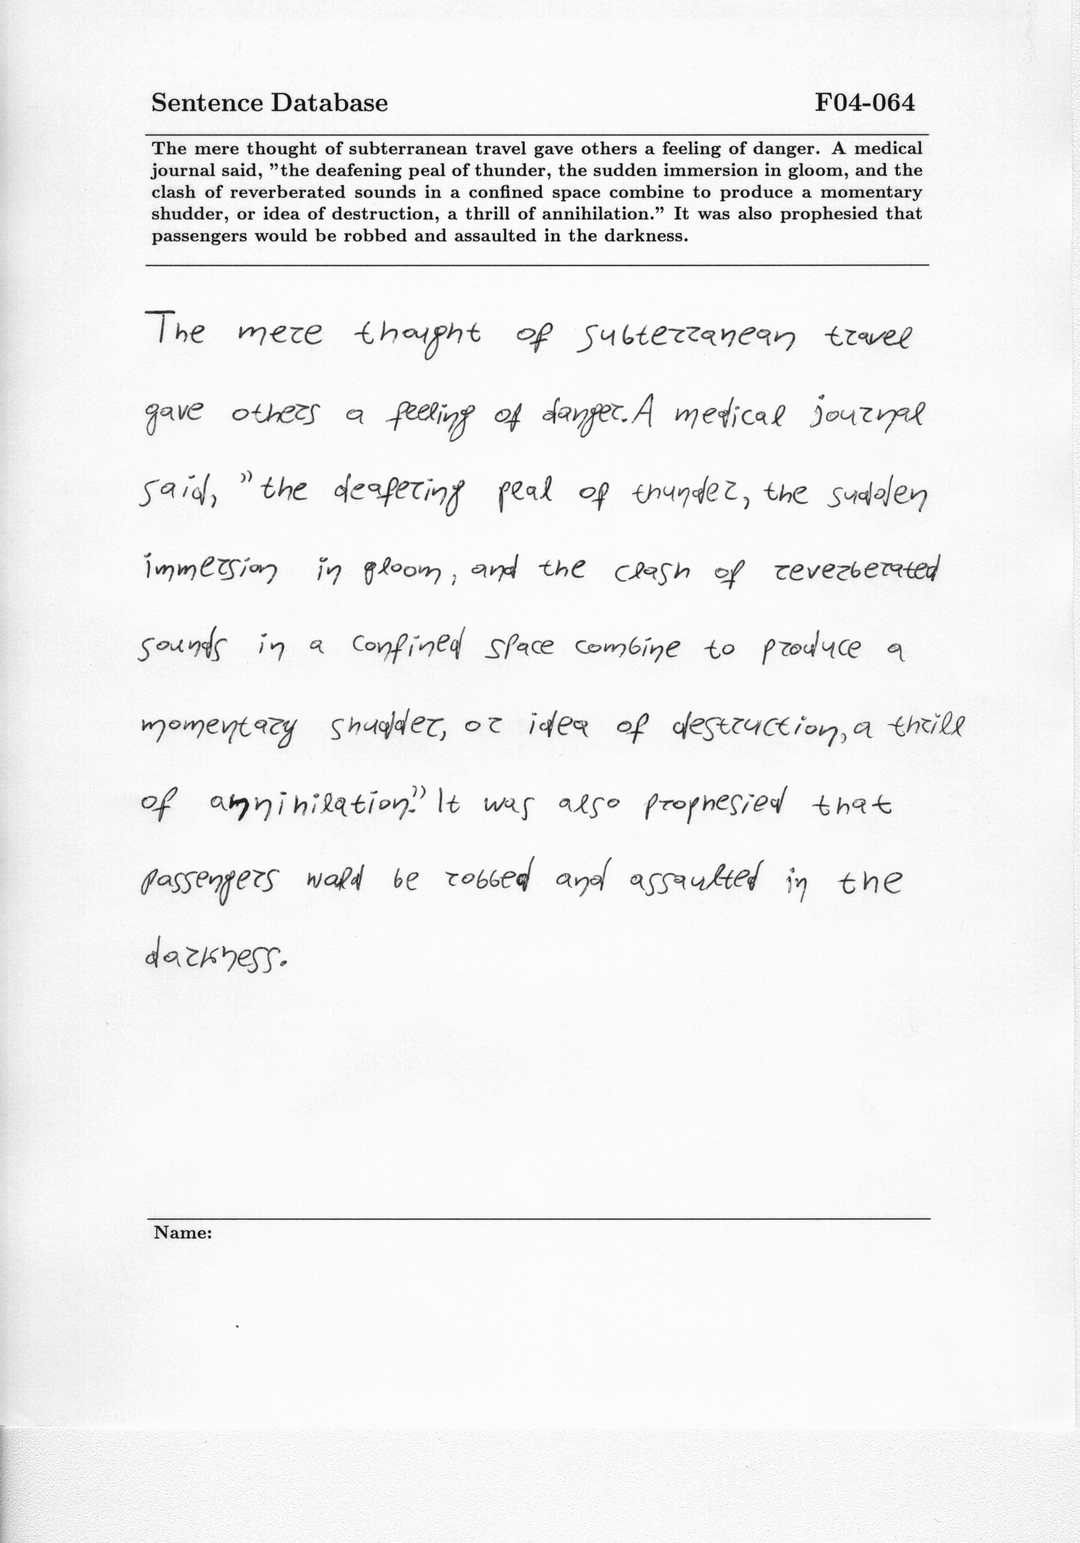 Sentence Database F04-064
The mere thought of subterranean travel gave others a feeling of danger. A medical
journal said, "the deafening peal of thunder, the sudden immersion in gloom, and the
clash of reverberated sounds in a confined space combine to produce a momentary
shudder, or idea of destruction, a thrill of annihilation." It was also prophesied that
passengers would be robbed and assaulted in the darkness.
The mere thought of subterranean travel
gave others a feeling of danger. A medical journal
said, "the deafering peal of thunder, the sudden
immersion in gloom, and the clash of reverberated
sounds in a confined space combine to produce a
momentary shudder, or idea of destruction, a thrill
of annihilation." It was also prophesied that
passengers would be robbed and assaulted in the
darkness.
Name: